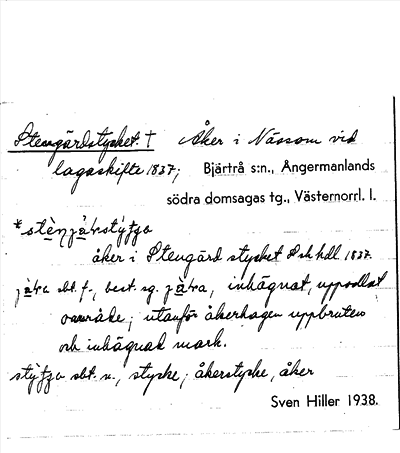 Stengärdstycket. † Åker i Nässom vid
lagaskifte 1837; Bjärtrå s:n., Ångermanlands
södra domsagas tg., Västernorrl. l.
åker i Stengärd stycket 1837.
sbt. f., best. sg. inhägnat, uppodlat
område; utanför åkerhagen uppbruten
och inhägnad mark.
sbt. n., stycke; åkerstycke, åker
Sven Hiller 1938.